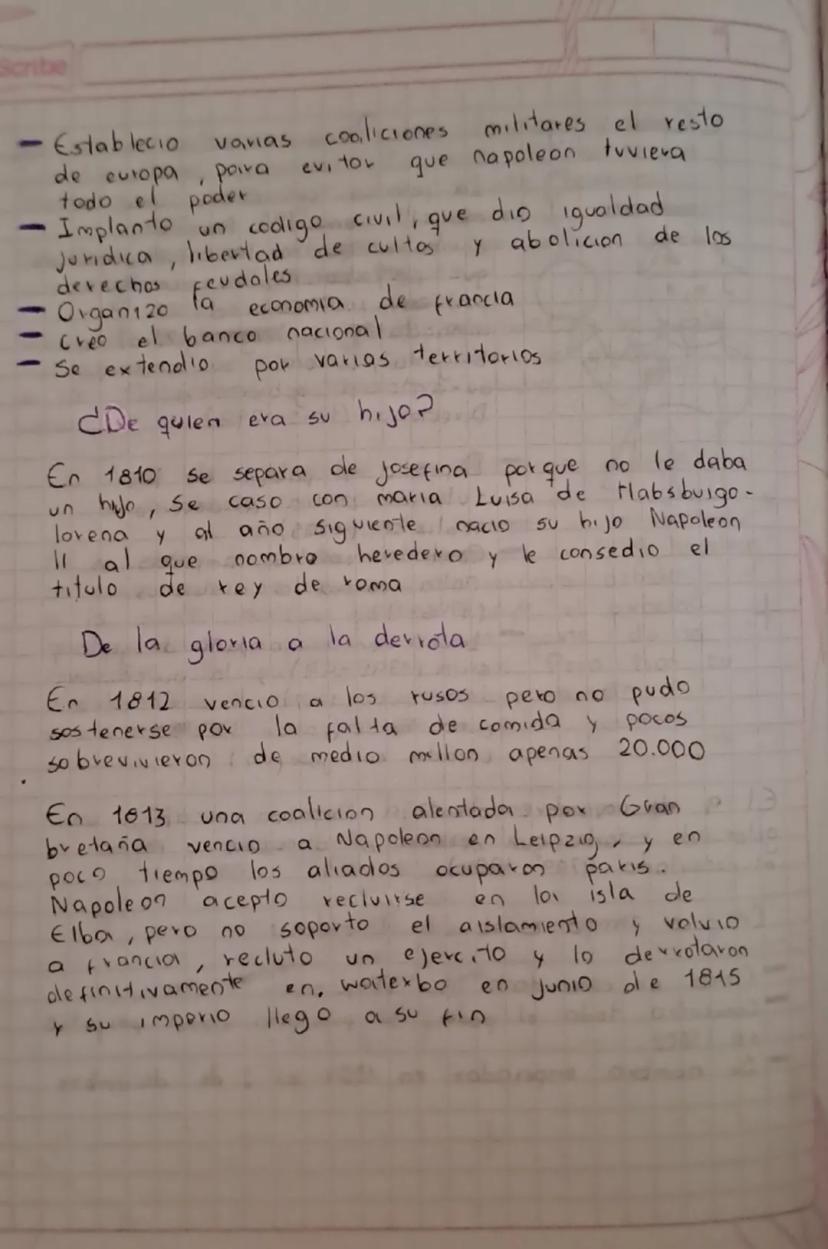 Scribe
- Establecio varias coaliciones militares el resto
de europa, para evitar que napoleon tuviera
todo el poder
- Implanto un codigo civil, que dio igualdad
juridica, libertad de cultos y abolicion de los
derechos feudales
- Organizo la economia de francia
- creo el banco nacional
- Se extendio por varias territorios
¿De quien era su hijo?
En 1810 se separa de josefina porque no le daba
un hijo, se caso con maria Luisa de Habsburgo-
lorena y al año siguiente nacio su hijo Napoleon
II al que nombro heredero y le consedio el
titulo de rey de roma
De la gloria a la derrota
En 1812 vencio a los rusos pero no pudo
sostenerse por la falta de comida y pocos
sobrevivieron de medio millon apenas 20.000
En 1813 una coalicion alentada por Gran
bretaña vencio a Napoleon en Leipzig, y en
poco tiempo los aliados ocuparon paris.
Napoleon acepto recluirse en la isla de
Elba, pero no soporto el aislamiento y volvio
a francia, recluto un ejercito y lo derrotaron
definitivamente en. waterloo en junio de 1815
y su imperio llego a su fin